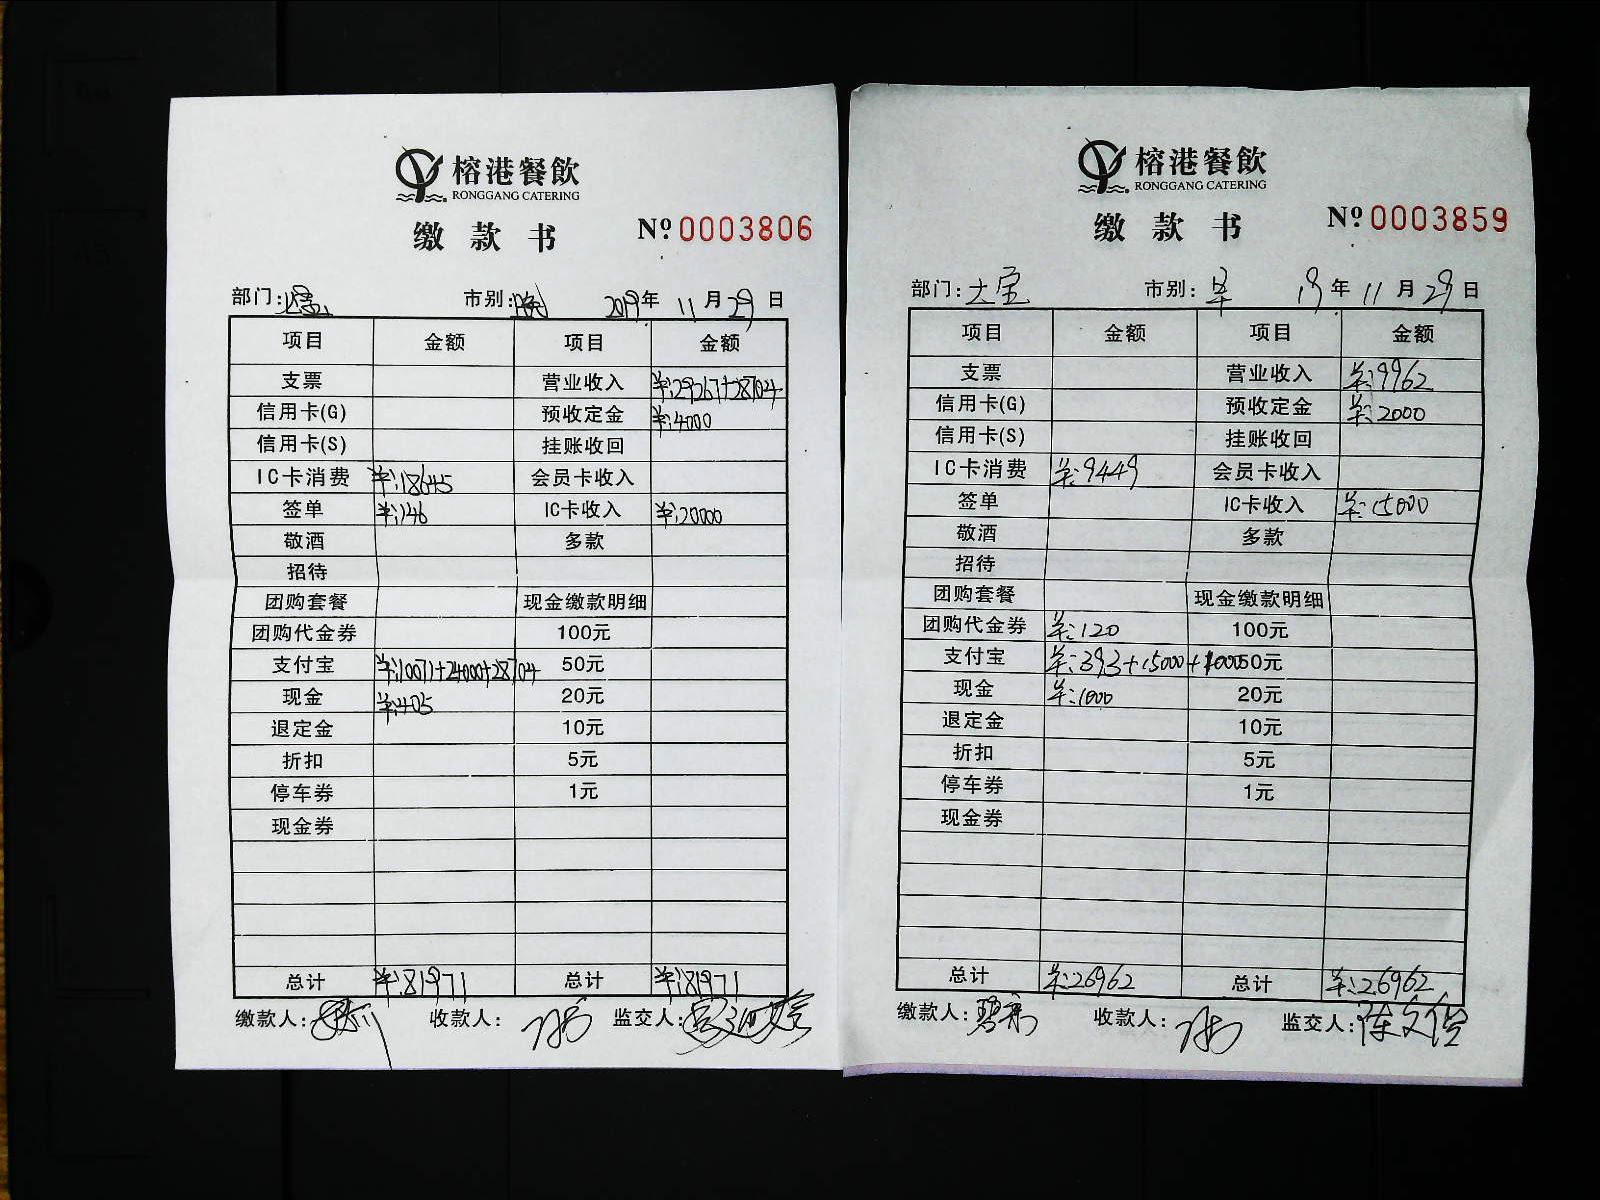 榕港餐飲
RONGGANG CATERING
缴款书 № 0003806
部门: 市别: 2019年 11月 29日
项目 金额 项目 金额
支票 营业收入 ¥:29267+28704
信用卡(G) 预收定金 ¥:4000
信用卡(S) 挂账收回
IC卡消费 ¥:18645 会员卡收入
签单 ¥:146 IC卡收入 ¥:20000
敬酒 多款
招待
团购套餐 现金缴款明细
团购代金券 100元
支付宝 ¥:10071+24000+28704 50元
现金 ¥:405 20元
退定金 10元
折扣 5元
停车券 1元
现金券
总计 ¥:81971 总计 ¥:81971
缴款人: 收款人: 监交人:
榕港餐飲
RONGGANG CATERING
缴款书 № 0003859
部门:大宝 市别: 19年 11月 29日
项目 金额 项目 金额
支票 营业收入 ¥:9962
信用卡(G) 预收定金 ¥:2000
信用卡(S) 挂账收回
IC卡消费 ¥:9449 会员卡收入
签单 IC卡收入 ¥:15000
敬酒 多款
招待
团购套餐 现金缴款明细
团购代金券 ¥:120 100元
支付宝 ¥:393+15000+1000 50元
现金 ¥:1000 20元
退定金 10元
折扣 5元
停车券 1元
现金券
总计 ¥:26962 总计 ¥:26962
缴款人: 收款人: 监交人: